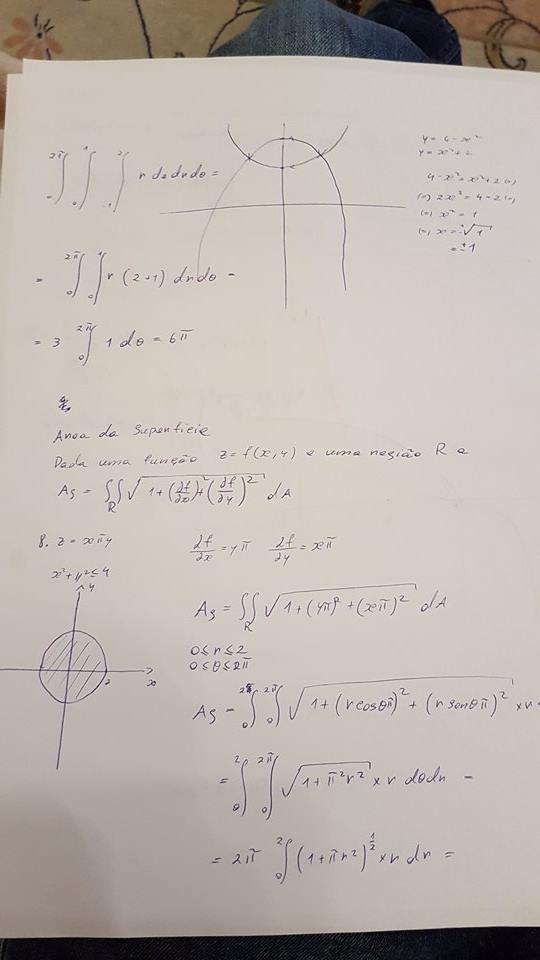 ∫₀^2π ∫₀^1 ∫₋₁^2 r dz dr dθ =
y = 4 - x²
y = x² + 2
4 - x² = x² + 2 (=)
(=) 2x² = 4 - 2 (=)
(=) x² = 1
(=) x = ±√1
= ±1
= ∫₀^2π ∫₀^1 r (2+1) dr dθ =
= 3 ∫₀^2π 1 dθ = 6π
Area da Superficie
Dada uma função z = f(x,y) e uma região R a
As = ∬_R √(1 + (∂f/∂x)² + (∂f/∂y)²) dA
8. z = xπy
∂f/∂x = yπ ∂f/∂y = xπ
x² + y² ≤ 4
y
As = ∬_R √(1 + (yπ)² + (xπ)²) dA
0 ≤ r ≤ 2
0 ≤ θ ≤ 2π
2 x
As = ∫₀^2π ∫₀^2π √(1 + (r cosθπ)² + (r senθπ)²) × r
= ∫₀^2 ∫₀^2π √(1 + π²r²) × r dθ dr =
= 2π ∫₀^2 (1 + πr²)^1/2 × r dr =